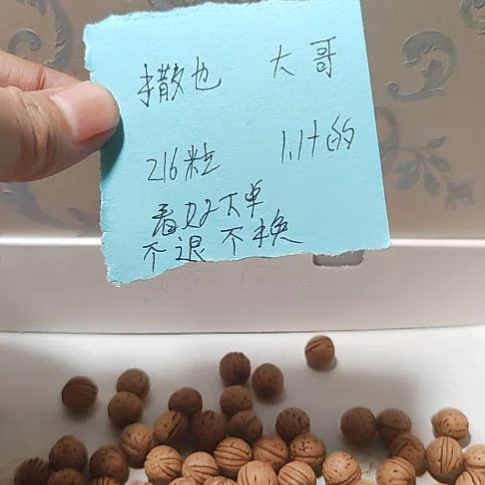 撒也 大哥
216粒 1.1+的
看好下单
不退不换